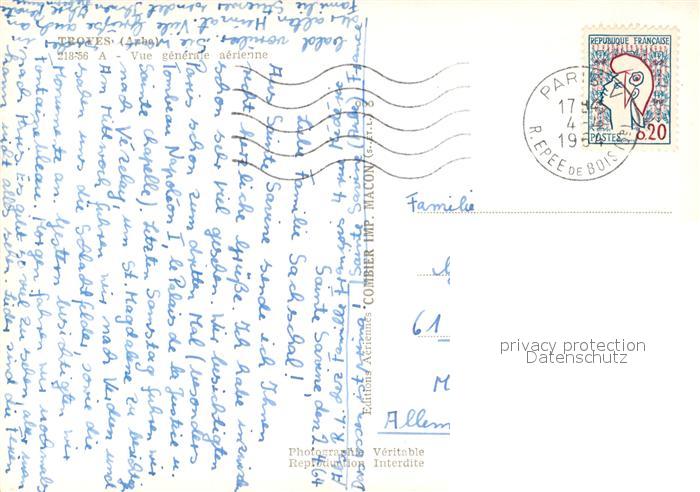 TROYES (Aube)
218-56 A - Vue générale aérienne
Editions Aériennes COMBIER IMP. MACON (S.-et-L.) 8
Photographie Véritable
Reproduction Interdite
REPUBLIQUE FRANÇAISE
POSTES
0.20
PARIS
17H
4-4
1964
R. EPEE DE BOIS (5e)
Familie
61
M
Allem
privacy protection
Datenschutz
Sainte Savine, den 2.4.64
Liebe Familie Sachschal!
Aus Sainte Savine sende ich Ihnen
recht herzliche Grüße. Ich habe inzwischen
schon sehr viel gesehen. Wir besichtigten
Paris schon zum dritten Mal (besonders
Tombeau Napoléon I, le Palais de la Justice u.
Sainte Chapelle). Letzten Samstag fuhren wir
nach Vézelay, um St. Magdalene zu besichtigen
Am Mittwoch fuhren wir nach Verdun und
sahen uns die Schlachtfelder sowie die
Monumente an. Gestern besichtigten wir
Fontainebleau. Morgen fahren wir nochmals
nach Paris. Es gibt so viel zu sehen, aber man
kann nicht alles sehen. Leider sind die Ferien
bald vorüber